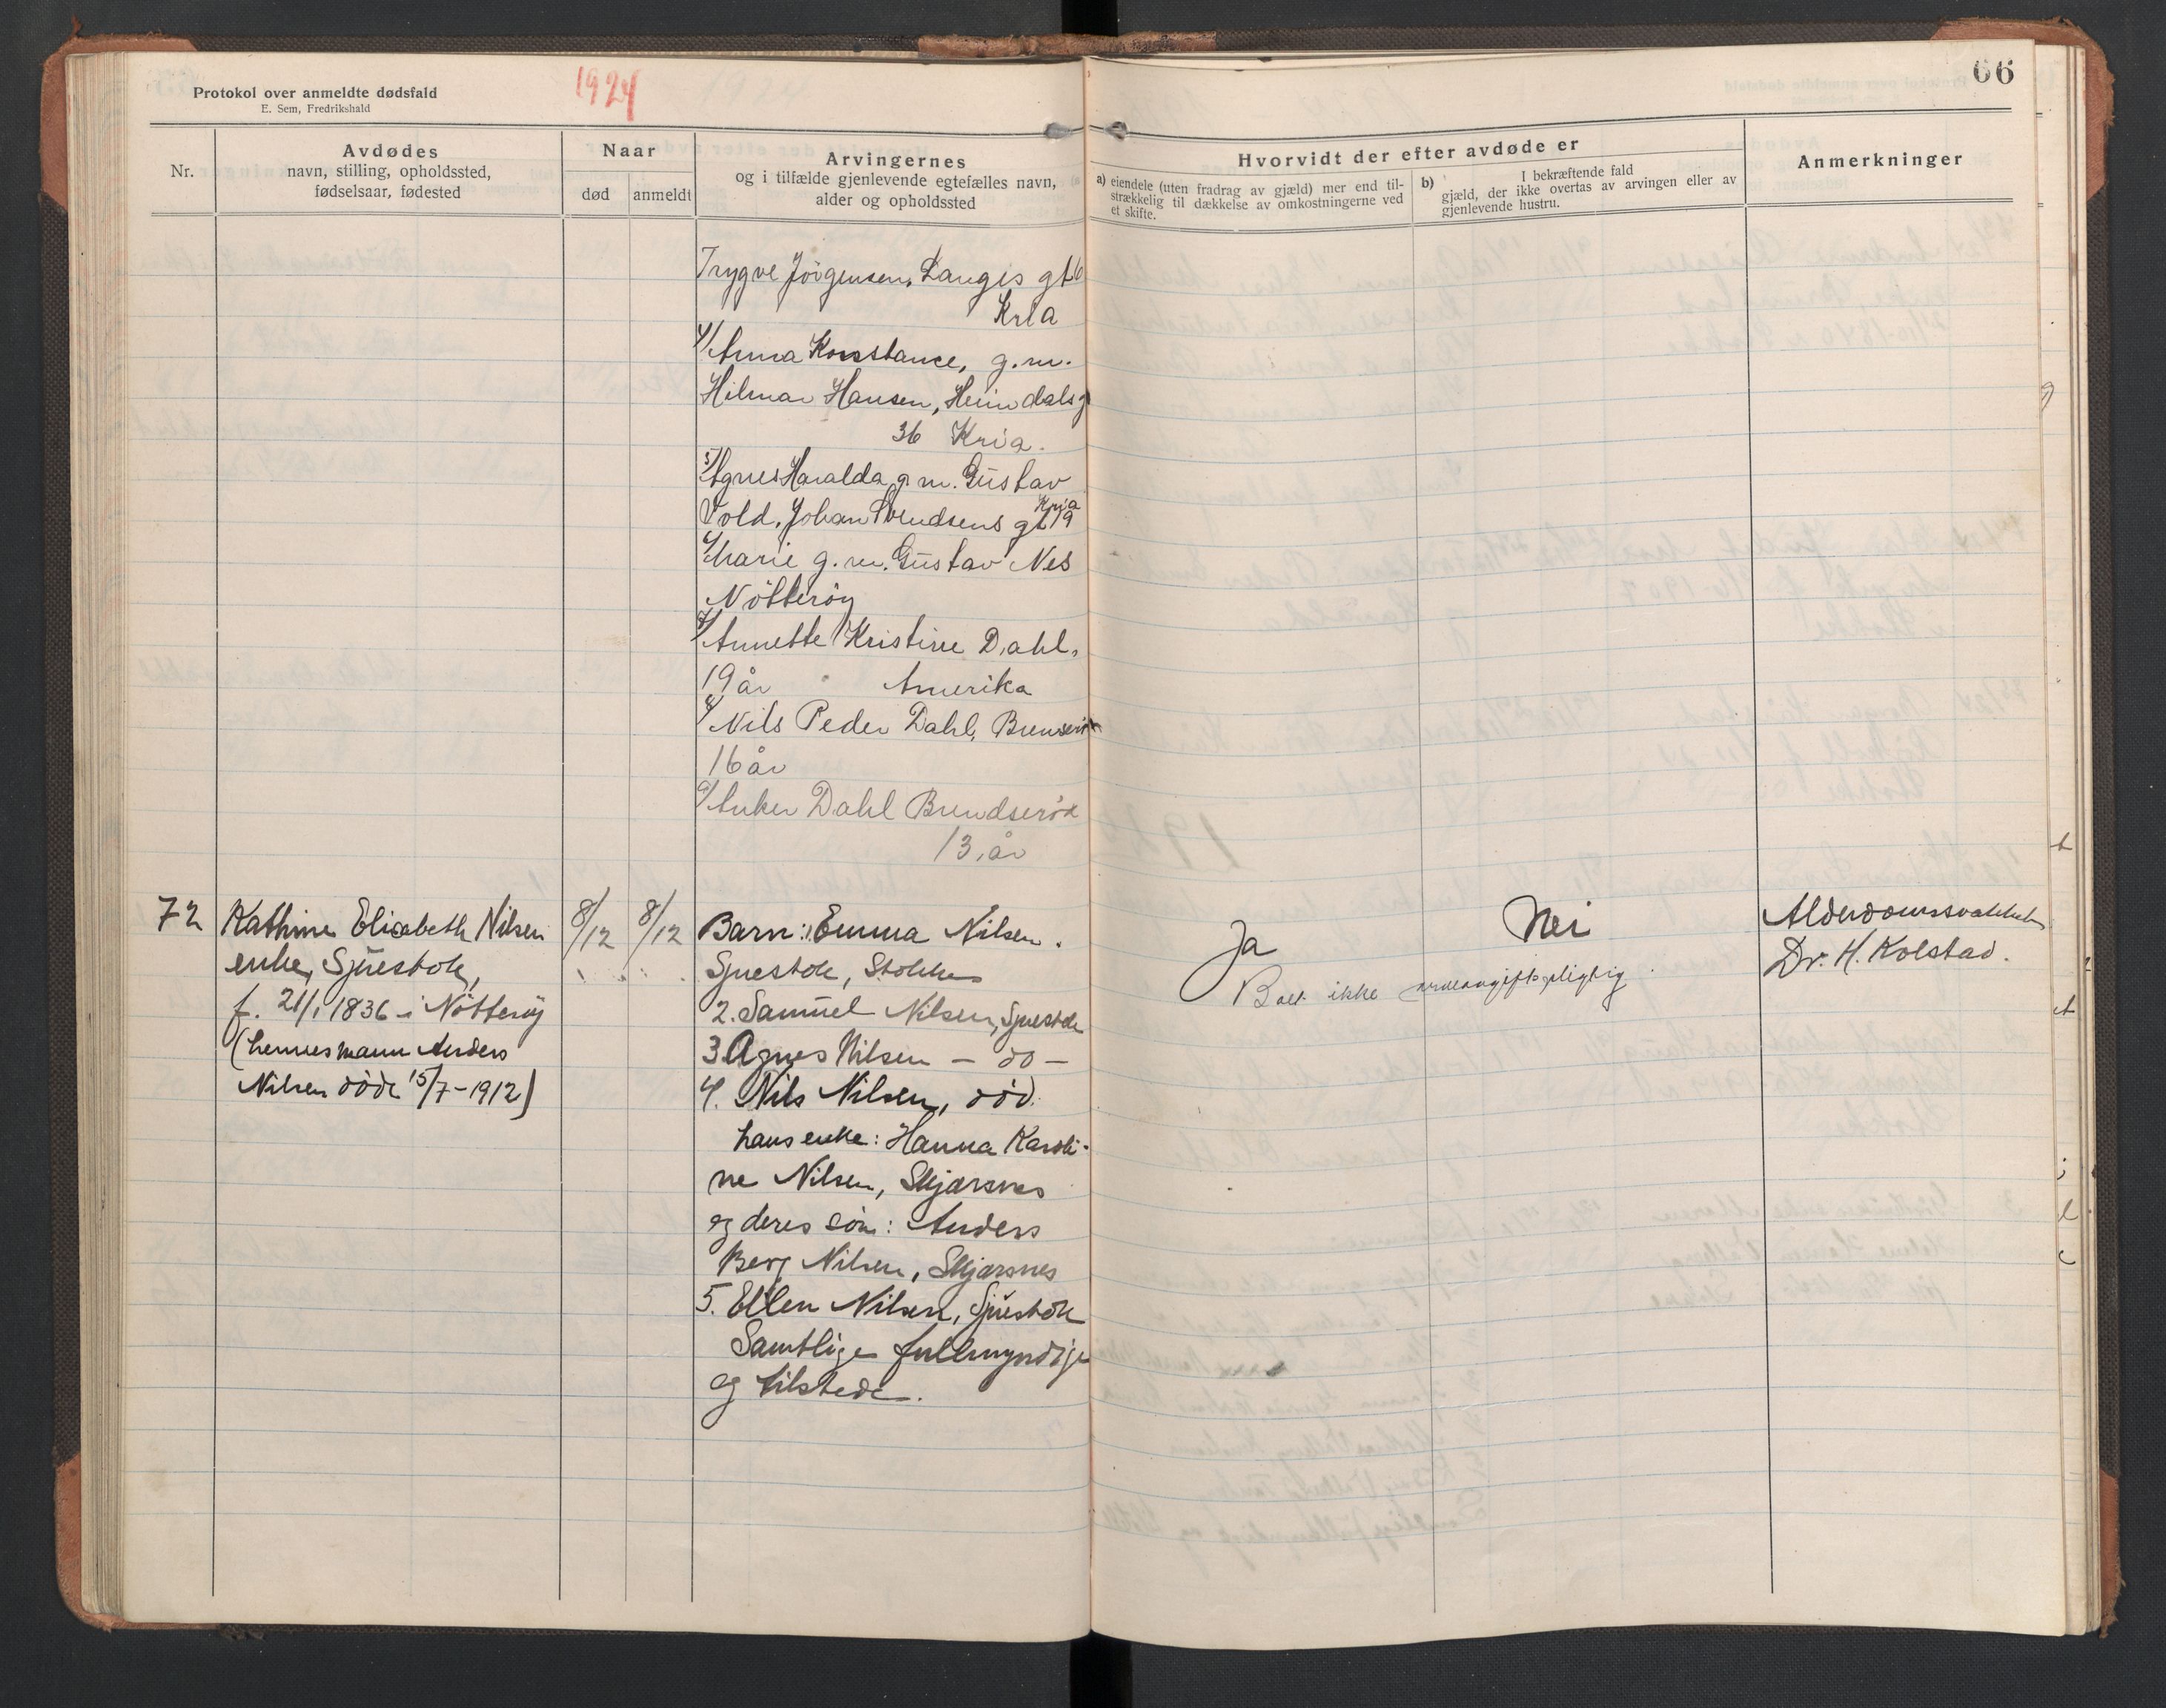 Protokol over anmeldte dødsfald
E. Sem, Fredrikshald
1924
66
Nr.
Avdødes
navn, stilling, opholdssted,
fødselsaar, fødested
Naar
død
anmeldt
Arvingernes
og i tilfælde gjenlevende egtefælles navn,
alder og opholdssted
Hvorvidt der efter avdøde er
a) eiendele (uten fradrag av gjæld) mer end til-
strækkelig til dækkelse av omkostningerne ved
et skifte.
b) I bekræftende fald
gjæld, der ikke overtas av arvingen eller av
gjenlevende hustru.
Anmerkninger
Trygve Jörgensen, Langes gt 6
Kria
4/ Anna Konstance, g.m.
Hilmar Hansen, Heimdalsg
36 Kria.
5/ Agnes Haralda g.m. Gustav
Vold, Johan Svendsens gt 19
Kria
6/ Marie g.m. Gustav Nes
Nötteröy
7/ Annette Kristine Dahl,
19 år Amerika
8/ Nils Peder Dahl,
16 år
9/ Anker Dahl Brundseröd
13 år
72
Kathine Elisabeth Nilsen
enke, Sjuestok,
f. 21/1 1836 i Nötteröy
(hennes mann Anders
Nilsen döde 15/7-1912)
8/12
8/12
Barn: 1, Emma Nilsen.
Sjuestok, Stokke
2. Samuel Nilsen, Sjuestok
3. Agnes Nilsen - do -
4. Nils Nilsen, död.
hans enke: Hanna Karoli-
ne Nilsen, Skjærsnes
og deres sön: Anders
Berg Nilsen, Skjærsnes
5. Ellen Nilsen, Sjuestok
Samtlige fuldmyndige
og tilstede.
Ja
Nei
Boet ikke arveavgiftspligtig.
Alderdomssvakhet
Dr. H. Kolstad.